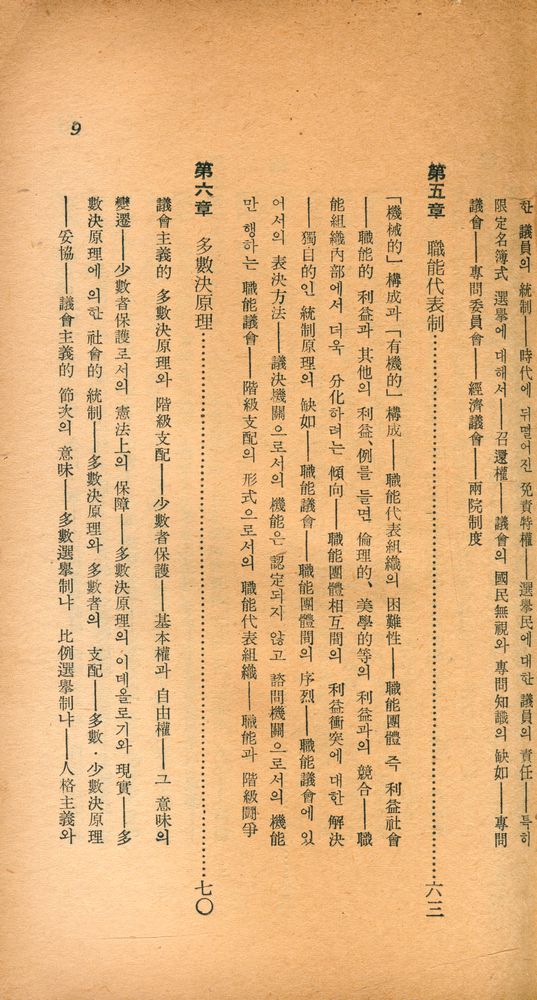 한 議員의 統制――時代에 뒤떨어진 免責特權――選擧民에 대한 議員의 責任――특히
限定名簿式 選擧에 대해서――召還權――議會의 國民無視와 專門知識의 缺如――專門
議會――專門委員會――經濟議會――兩院制度
第五章 職能代表制……………………六三
「機械的」構成과「有機的」構成――職能代表組織의 困難性――職能團體 즉 利益社會
――職能的 利益과 其他의 利益、例를 들면 倫理的、美學的等의 利益과의 競合――職
能組織內部에서 더욱 分化하려는 傾向――職能團體相互間의 利益衝突에 대한 解決
――獨自的인 統制原理의 缺如――職能議會――職能團體間의 序列――職能議會에 있
어서의 表決方法――議決機關으로서의 機能은 認定되지 않고 諮問機關으로서의 機能
만 행하는 職能議會――階級支配의 形式으로서의 職能代表組織――職能과 階級鬪爭
第六章 多數決原理……………………七〇
議會主義的 多數決原理와 階級支配――少數者保護――基本權과 自由權――그 意味의
變遷――少數者保護로서의 憲法上의 保障――多數決原理의 이데올로기와 現實――多
數決原理에 의한 社會的 統制――多數決原理와 多數者의 支配――多數・少數決原理
――妥協――議會主義的 節次의 意味――多數選擧制냐 比例選擧制냐――人格主義와
9